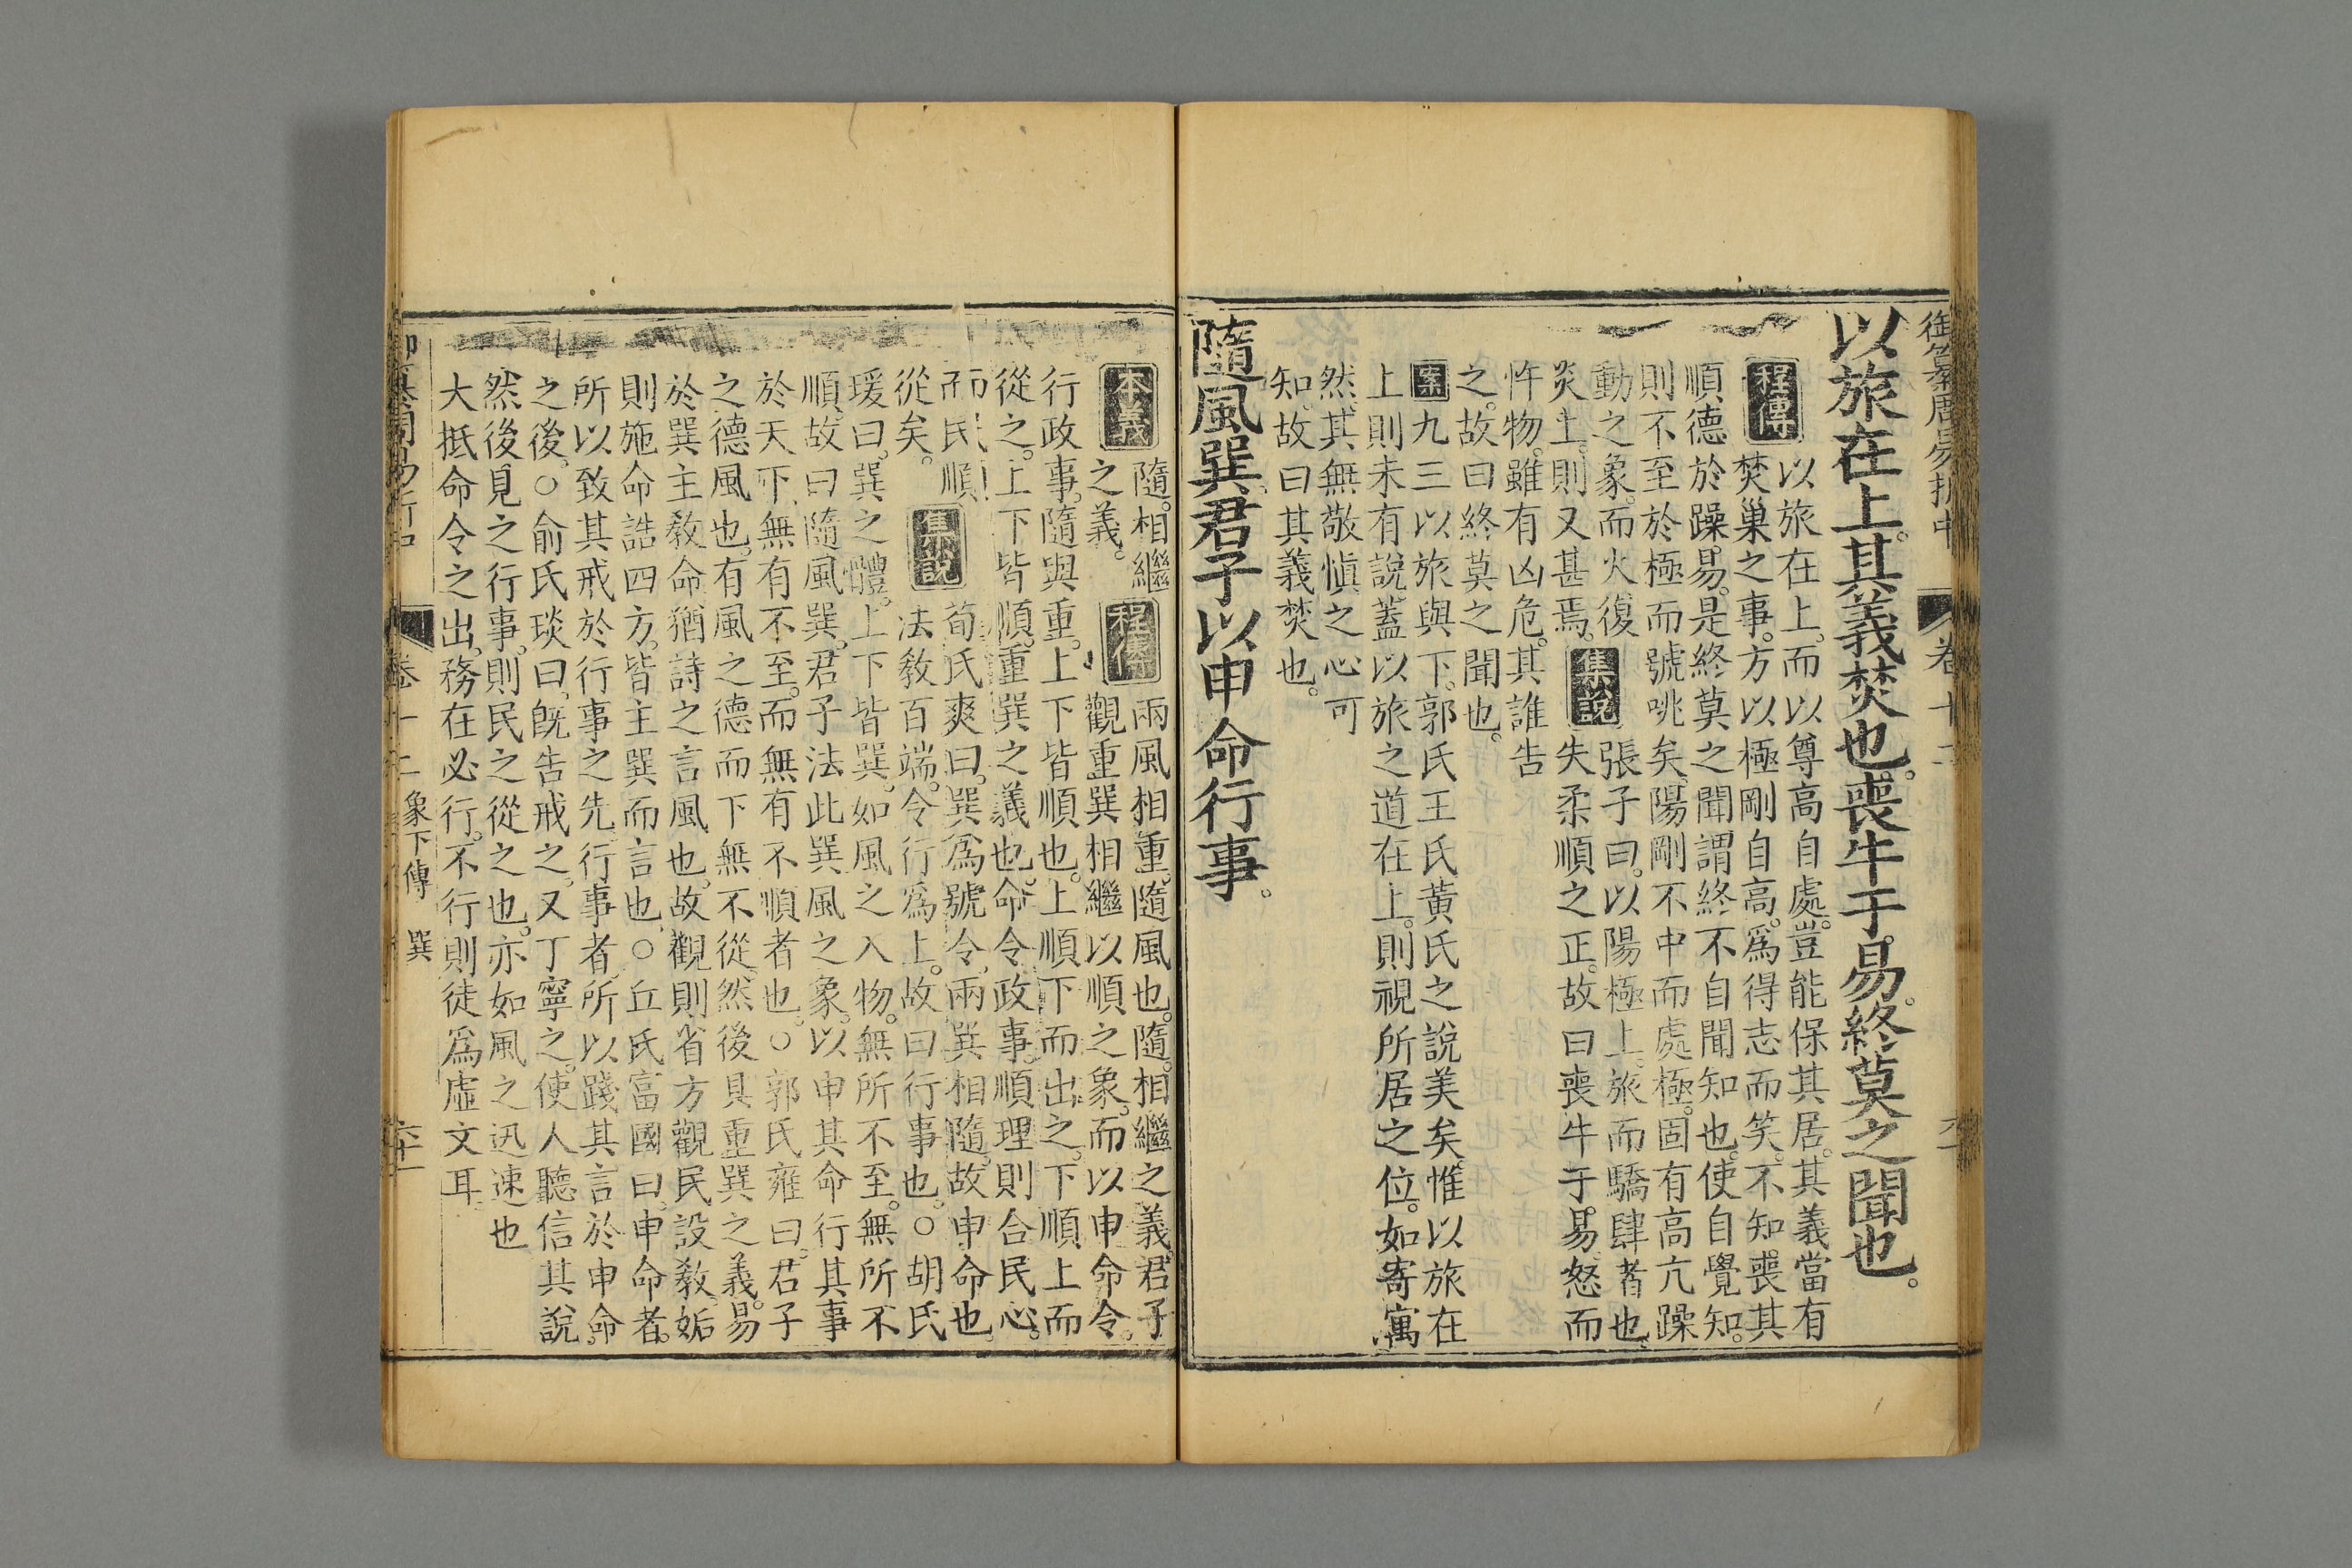 御纂周易折中 卷十二
以旅在上。其義焚也。喪牛于易。終莫之聞也。
程傳
以旅在上。而以尊高自處。豈能保其居。其義當有
焚巢之事。方以極剛自高。爲得志而笑。不知喪其
順德於躁易。是終莫之聞。謂終不自聞知也。使自覺知。
則不至於極而號咷矣。陽剛不中而處極。固有高亢躁
動之象。而火復
炎上。則又甚焉。
集說
張子曰。以陽極上。旅而驕肆者也。
失柔順之正。故曰喪牛于易。怒而
忤物。雖有凶危。其誰告
之。故曰終莫之聞也。
案九三以旅與下。郭氏王氏黃氏之說美矣。惟以旅在
上則未有說。蓋以旅之道在上。則視所居之位。如寄寓
然。其無敬愼之心可
知。故曰其義焚也。
隨風巽。君子以申命行事。
本義
隨。相繼
之義。
程傳
兩風相重。隨風也。隨。相繼之義。君子
觀重巽相繼以順之象。而以申命令。
行政事。隨與重。上下皆順也。上順下而出之。下順上而
從之。上下皆順。重巽之義也。命令政事。順理則合民心。
而民順
從矣。
集說
荀氏爽曰。巽爲號令。兩巽相隨。故申命也。
法敎百端。令行爲上。故曰行事也。○胡氏
瑗曰。巽之體。上下皆巽。如風之入物。無所不至。無所不
順。故曰隨風巽。君子法此巽風之象。以申其命行其事
於天下。無有不至。而無有不順者也。○郭氏雍曰。君子
之德風也。有風之德而下無不從。然後具重巽之義。易
於巽主敎命。猶詩之言風也。故觀則省方觀民設敎。姤
則施命誥四方。皆主巽而言也。○丘氏富國曰。申命者。
所以致其戒於行事之先。行事者。所以踐其言於申命
之後。○俞氏琰曰。旣告戒之。又丁寧之。使人聽信其說。
然後見之行事。則民之從之也。亦如風之迅速也
大抵命令之出。務在必行。不行則徒爲虛文耳。
御纂周易折中 卷十二 象下傳 巽 六十一